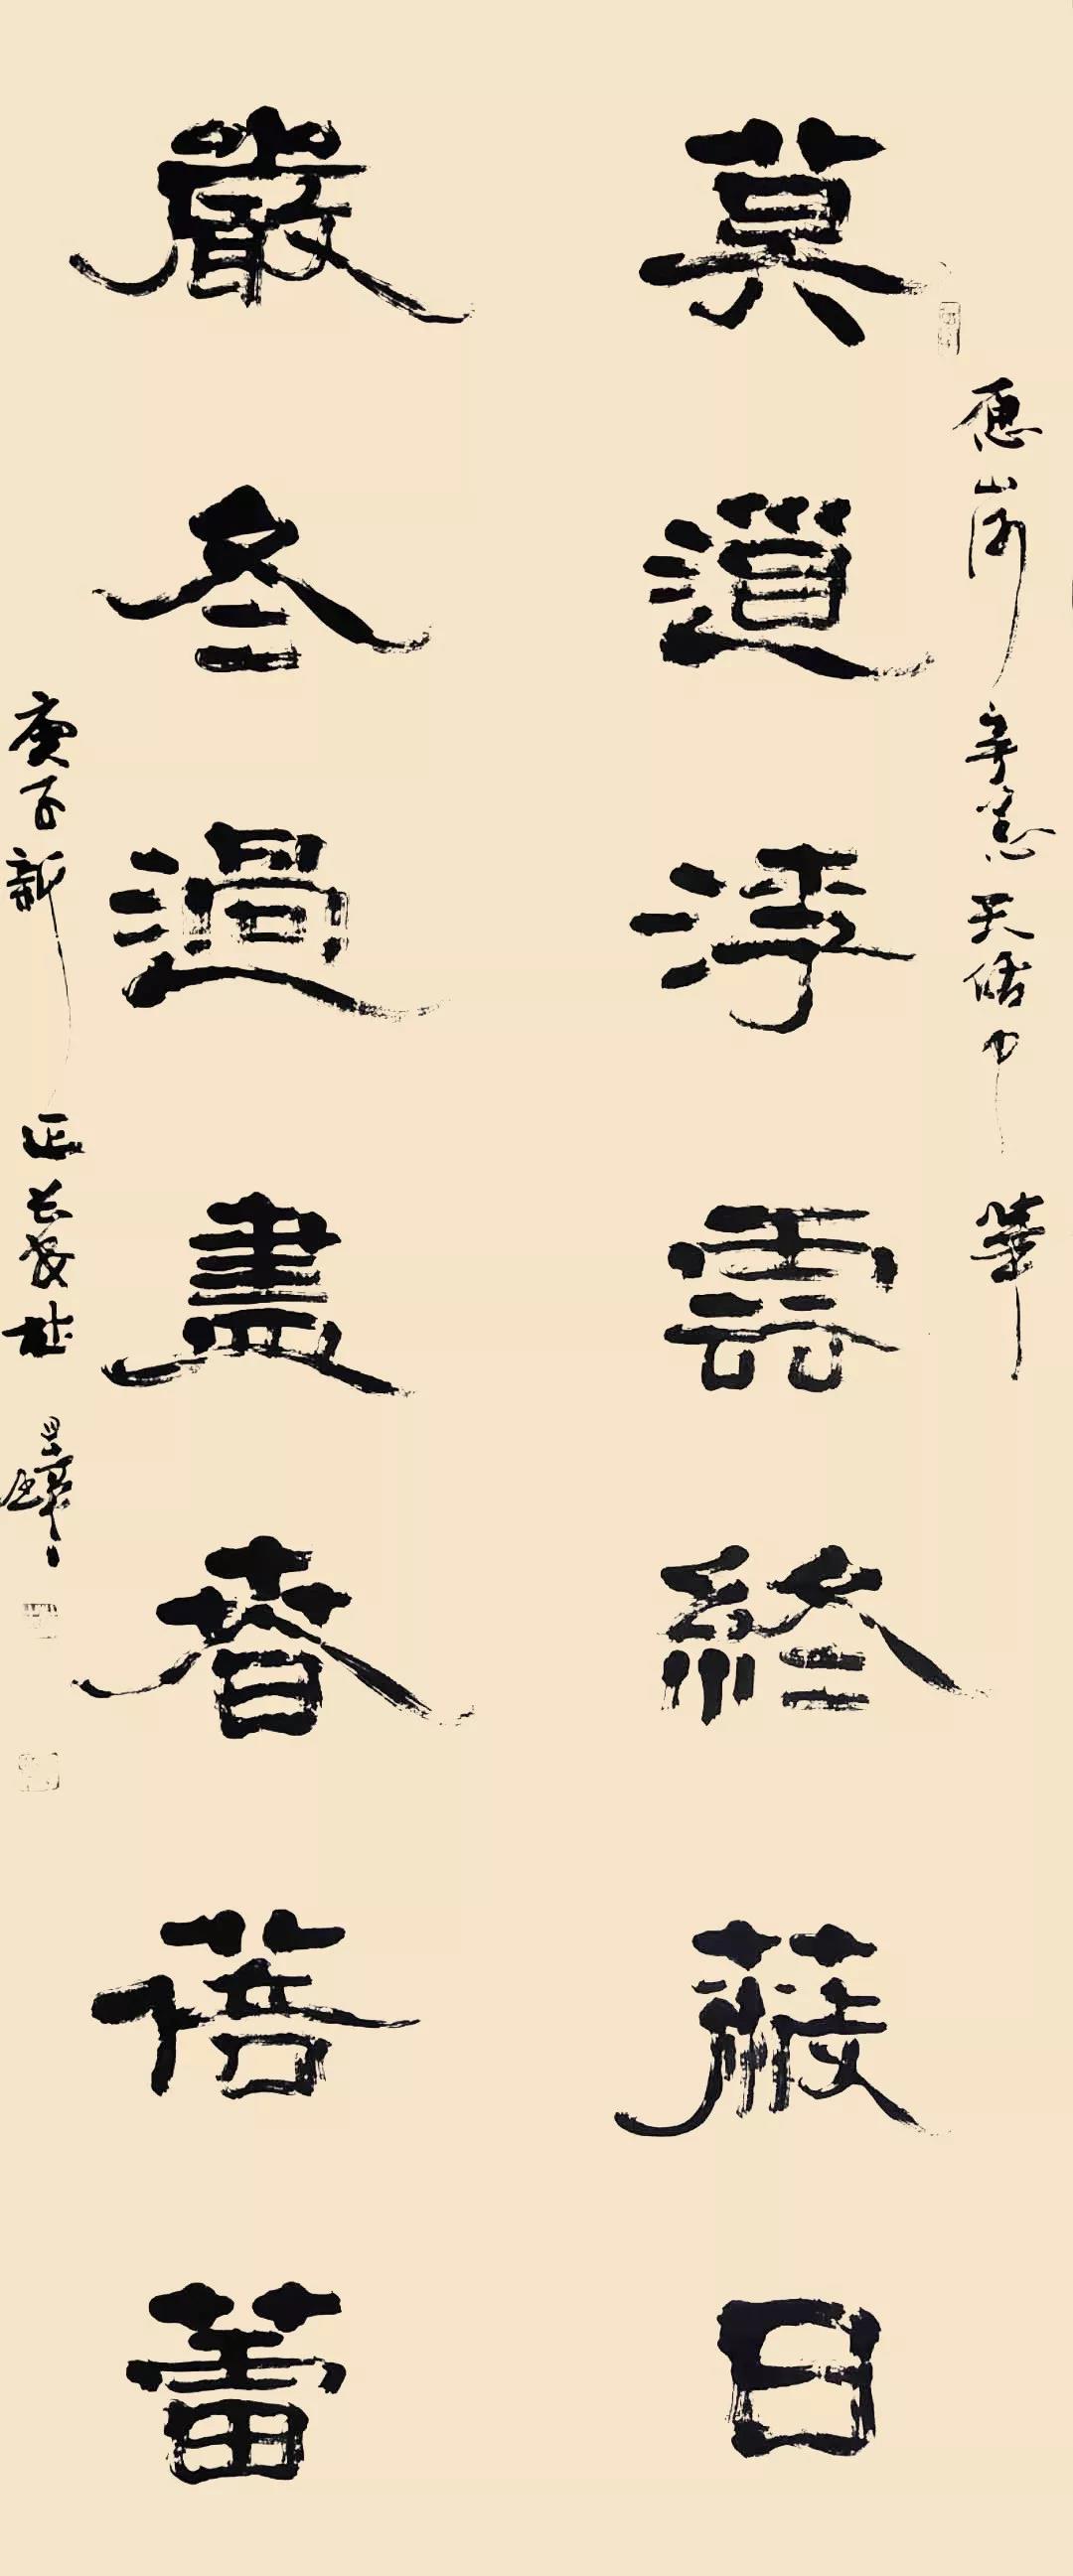 愿山河無恙天佑中華
莫道浮雲終蔽日
嚴冬過盡春蓓蕾
庚子新正長安杜